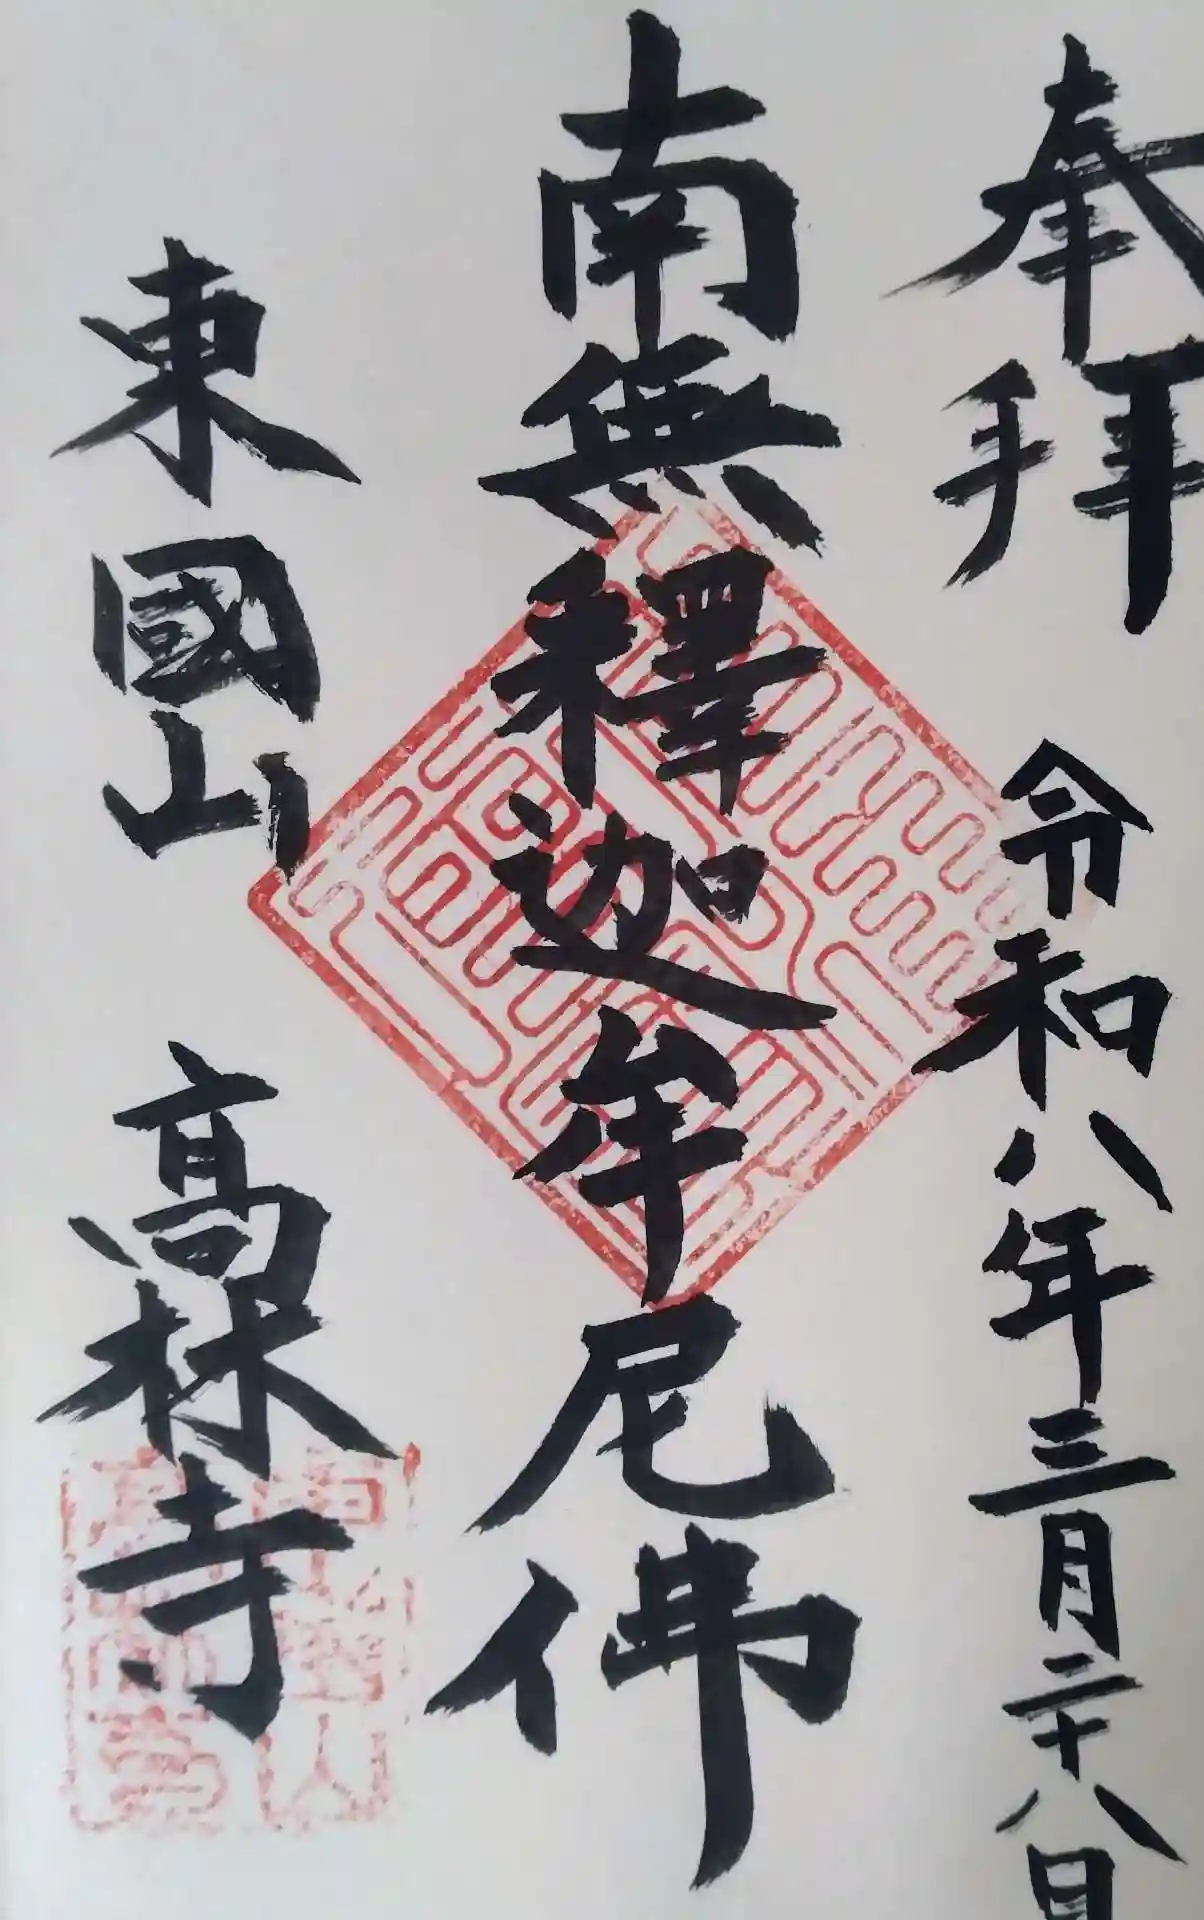 奉拝　令和八年三月二十八日
南無釋迦牟尼佛
東國山　高林寺